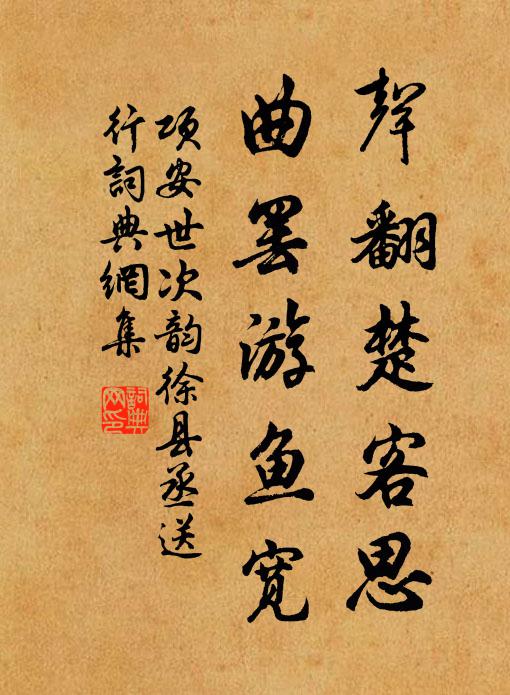 聲翻楚客思
曲罢游鱼寛
项安世次韵徐县丞送
行詞典網集
詞典
网印